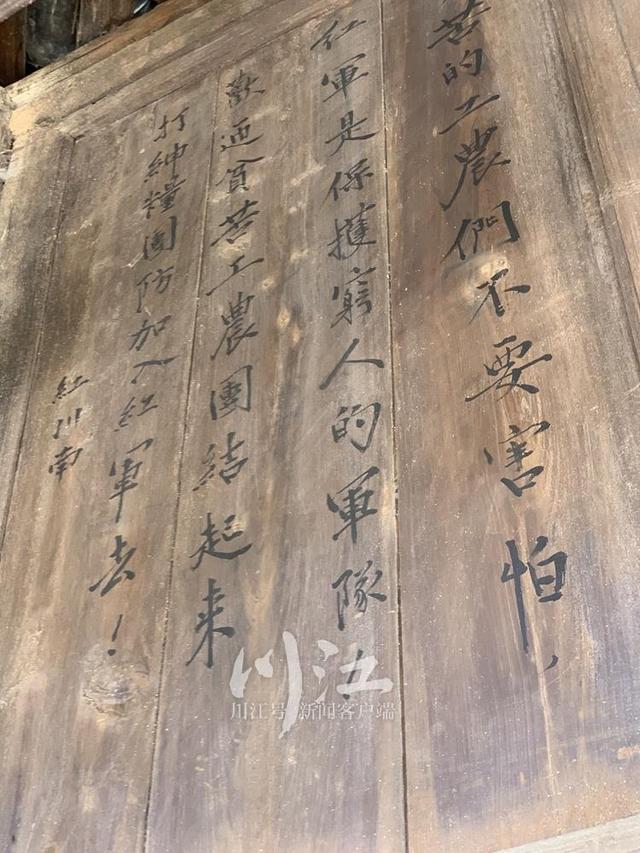 苦的工農們不要害怕，
紅軍是係䕶窮人的軍隊，
歡迎貧苦工農團結起来
打紳糧團防加入紅軍去！
紅川南
川江
川江号 新闻客户端